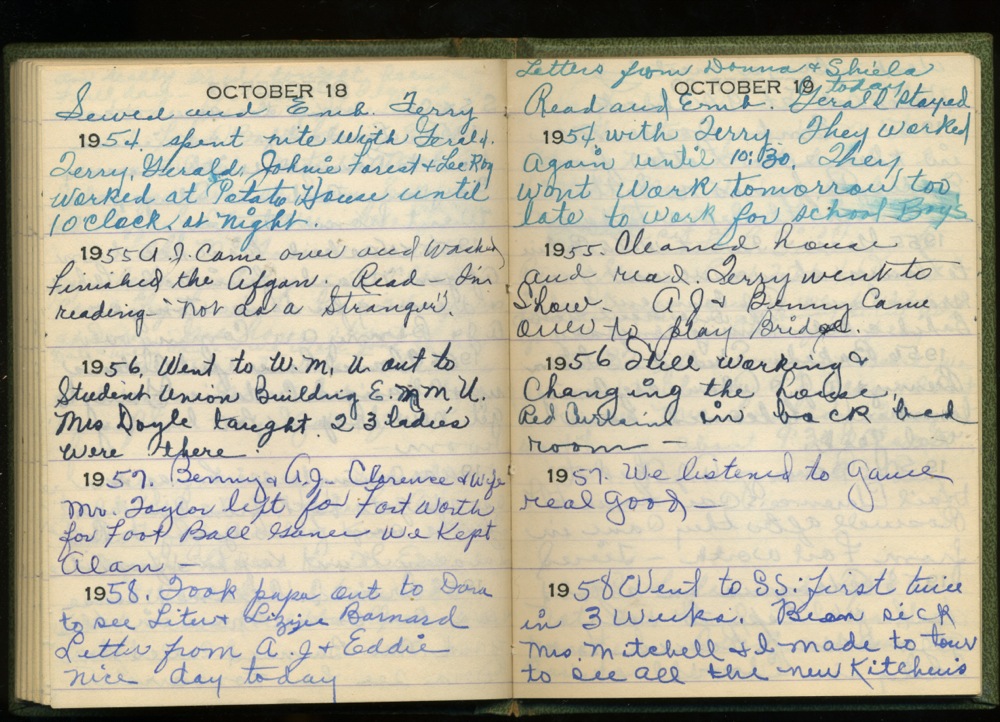 OCTOBER 18
Sewed and Emb. Terry
1954. spent nite with Gerald.
Terry, Gerald, Johnie Forest & Lee Roy
worked at Potato House until
10 clock at night.
1955 A.J. Came over and Washed
Finished the Afgan. Read - I'm
reading "Not as a Stranger".
1956, Went to W.M.U. out to
Student Union Building E.N.M.U.
Mrs Doyle taught 23 ladies
were there.
1957. Benny & A.J. Clarence & Wife
Mr. Taylor left for Fort Worth
for Foot Ball Game We Kept
Alan -
1958. Took papa out to Dora
to see Liter & Lizzie Barnard
Letter from A.J & Eddie
nice day today
Letters from Donna & Shiela
today
OCTOBER 19
Read and Emb. Gerald stayed
1954 with Terry They worked
again until 10:30. They
wont work tomorrow too
late to work for school Boys
1955. Cleaned house
and read. Terry went to
Show - A J & Benny Came
over to play Bridge.
1956 Still working &
Changing the house,
Red Curtains in back bed
room -
1957. We listened to Game
real good -
1958 Went to SS. first time
in 3 weeks. Been sick
Mrs. Mitchell & I made to tour
to see all the new Kitchens